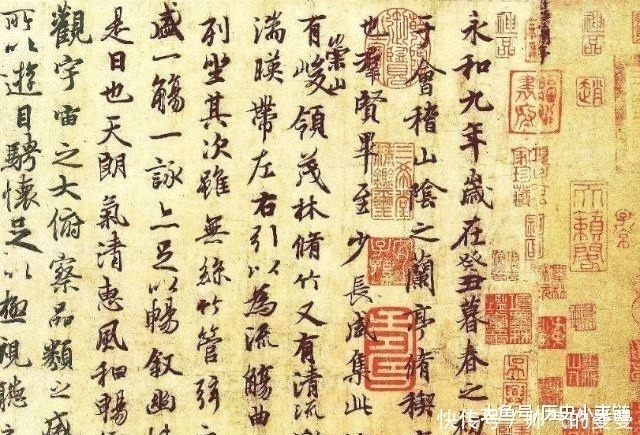 永和九年歲在癸丑暮春之
于會稽山陰之蘭亭脩稧
也羣賢畢至少長咸集此
有崇山峻領茂林脩竹又有清流
湍暎帶左右引以為流觴曲
列坐其次雖無絲竹管弦
盛一觴一詠亦足以暢敘幽
是日也天朗氣清惠風和暢
觀宇宙之大俯察品類之盛
所以遊目騁懷足以極視聽
趙
快传号/帅气的蔓蔓